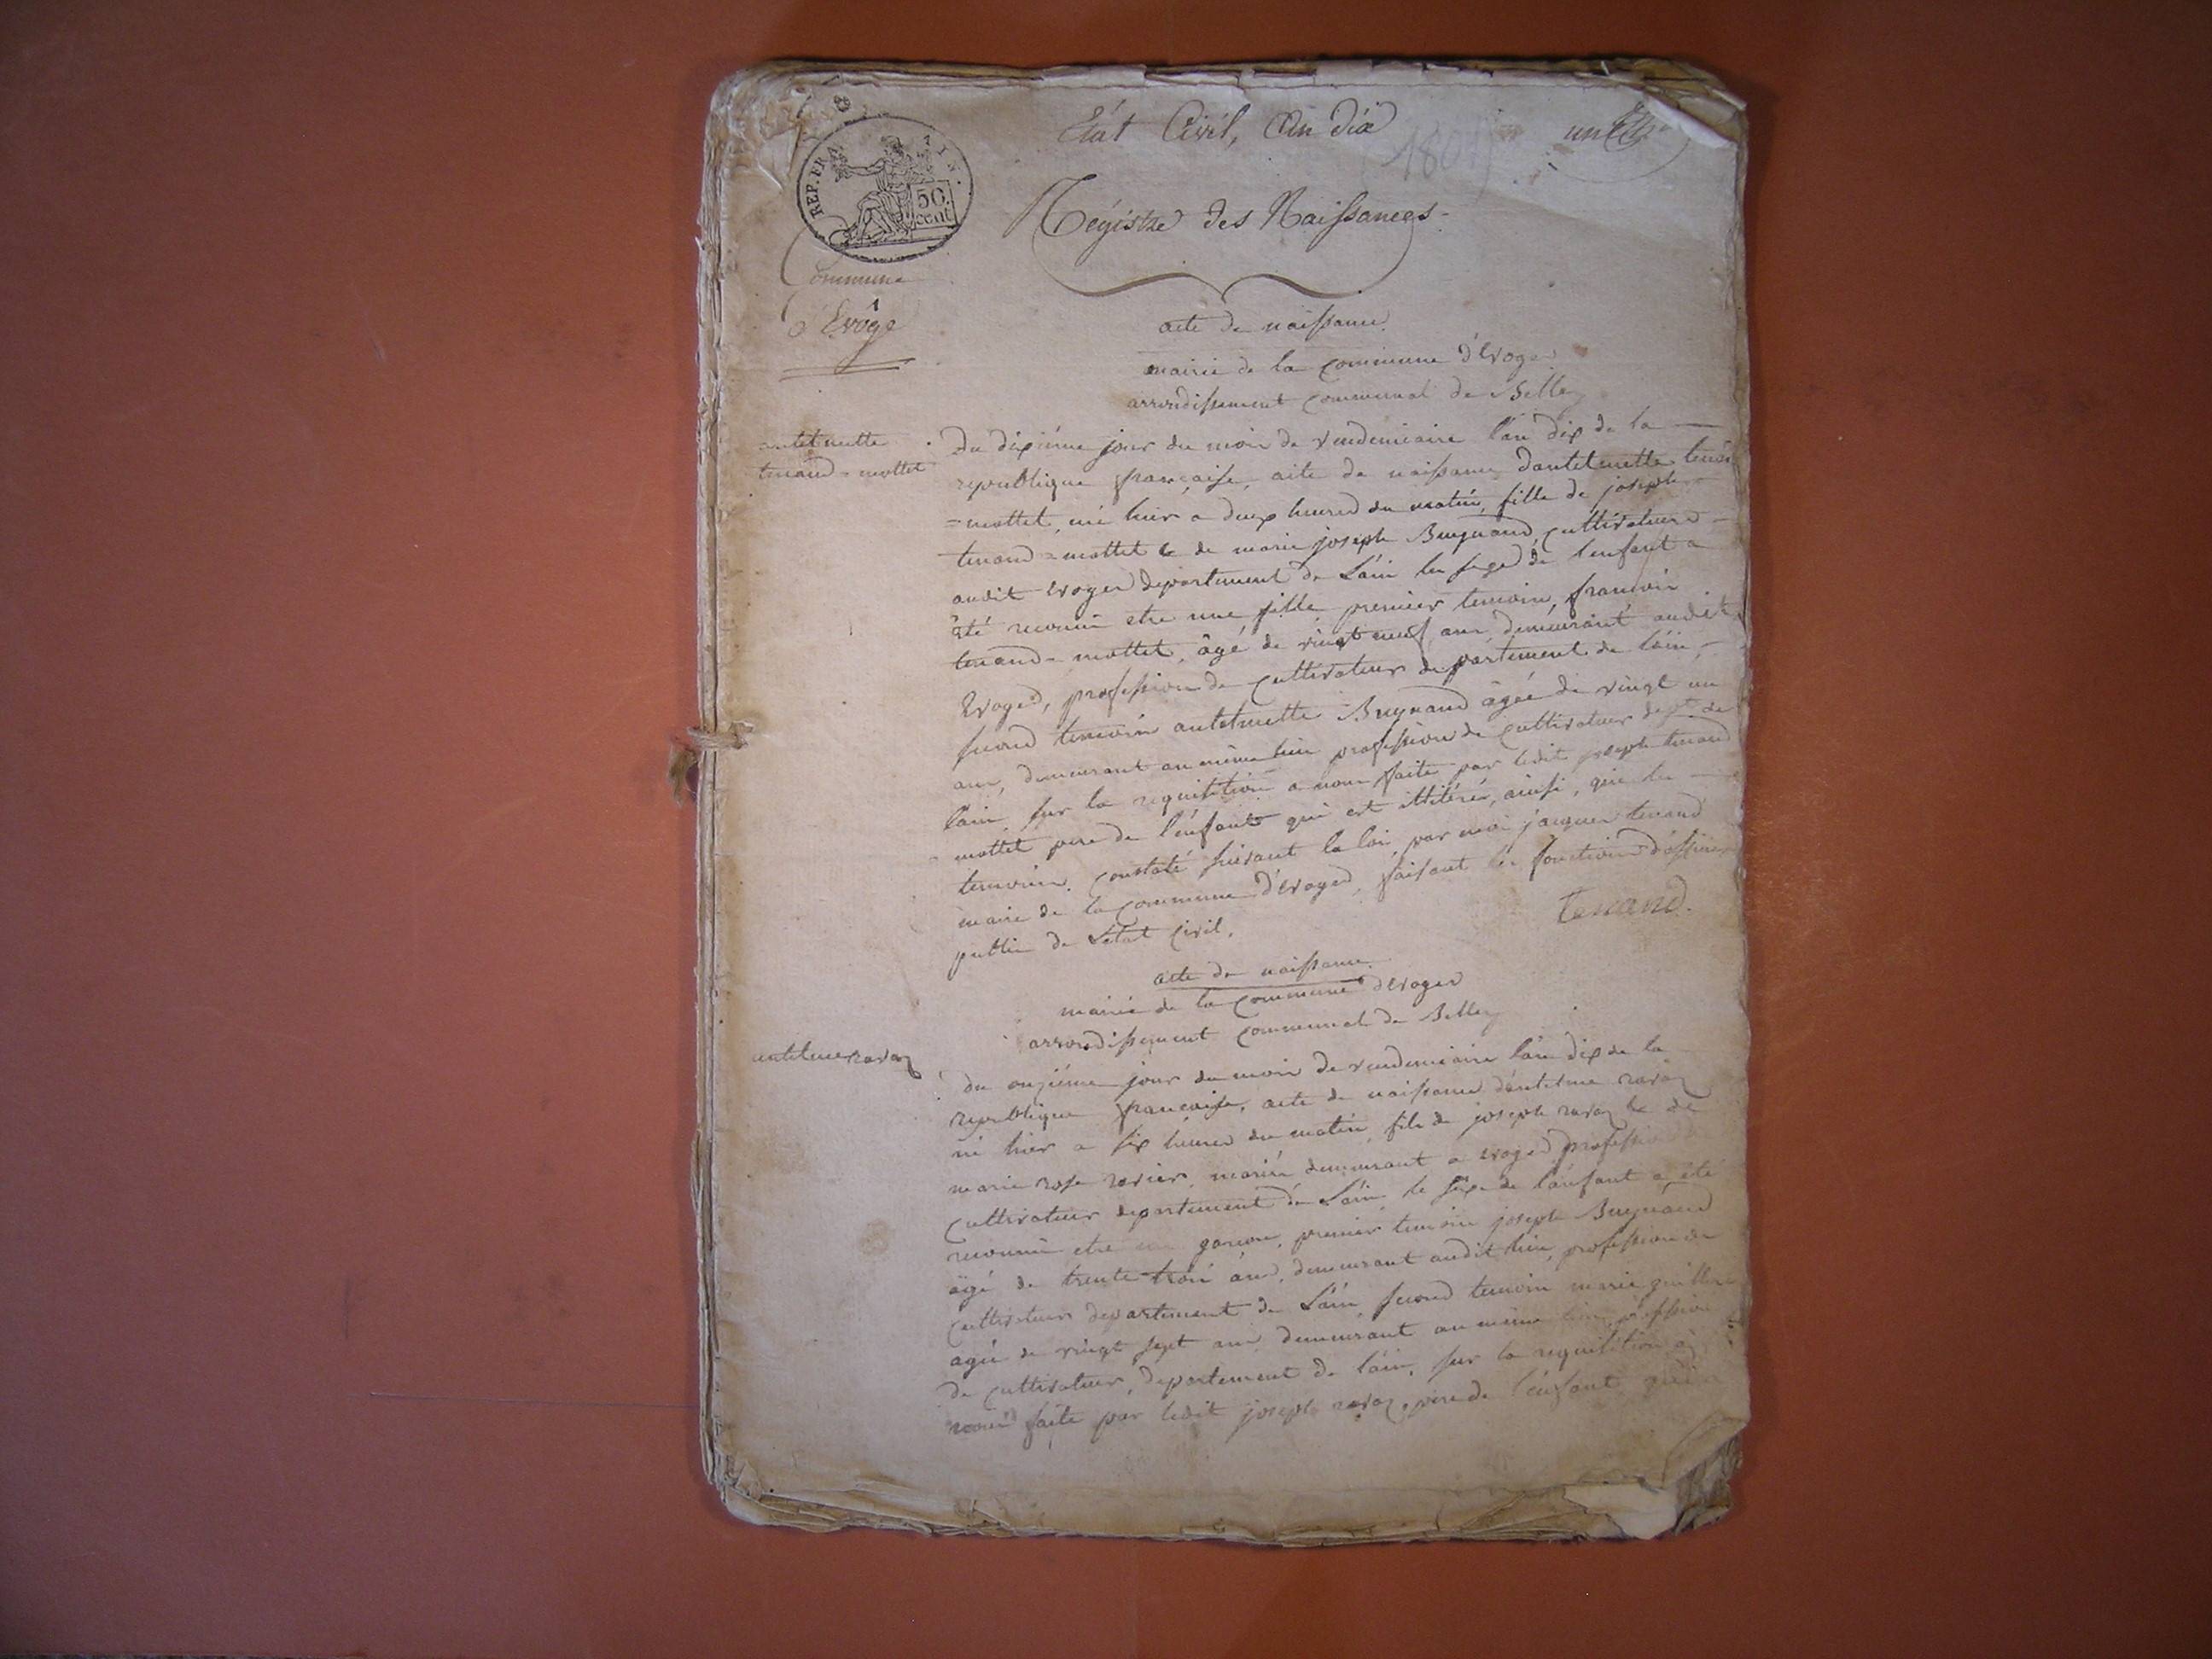 Etat Civil, An dix
(1801)
REP. FRA
50.
cent
Régistre des Naissances
Commune
d'Evôge
acte de naissance.
mairie de la commune d'Evoges
arrondissement communal de Belley
antelmette
tenand = mottet
Du dixiéme jour du mois de vendemiaire l'an dix de la
republique française, acte de naissance d'antelmette tenand
= mottet, née hier a deux heures du matin, fille de joseph
tenand = mottet & de marie joseph Buynand, cultivateurs
audit Evoges departement de L'ain le sexe de l'enfant a
été reconnu etre une fille, premier temoin, francois
tenand = mottet, âgé de vingt neuf ans, demeurant audit
Evoges, profession de cultivateur departement de l'ain,
second temoin antelmette Buynand âgée de vingt un
ans, demeurant au même lieu profession de cultivateur dept. de
l'ain sur la requisition a nous faite par ledit joseph tenand
mottet pere de l'enfant qui est illitéré, ainsi, que les
temoins. Constaté suivant la loi, par moi jacques tenand
maire de la commune d'Evoges, faisant les fonctions d'officier
public de L'etat civil.
Tenand.
acte de naissance.
mairie de la commune d'Evoges
arrondissement communal de Belley
antelme ravaz
du onziéme jour du mois de vendemiaire l'an dix de la
republique française, acte de naissance d'antelme ravaz
né hier a six heures du matin, fils de joseph ravaz & de
marie rose ravier, mariés demeurant a Evoges profession
cultivateur departement de L'ain le sexe de l'enfant a été
reconnu etre un garcon, premier temoin joseph Buynand
âgé de trente trois ans, demeurant audit lieu, profession de
cultivateur departement de L'ain, second temoin marie
agée de vingt sept ans demeurant au même lieu, profession
de cultivateur, departement de l'ain, sur la requisition à
nous faite par ledit joseph ravaz, pere de l'enfant